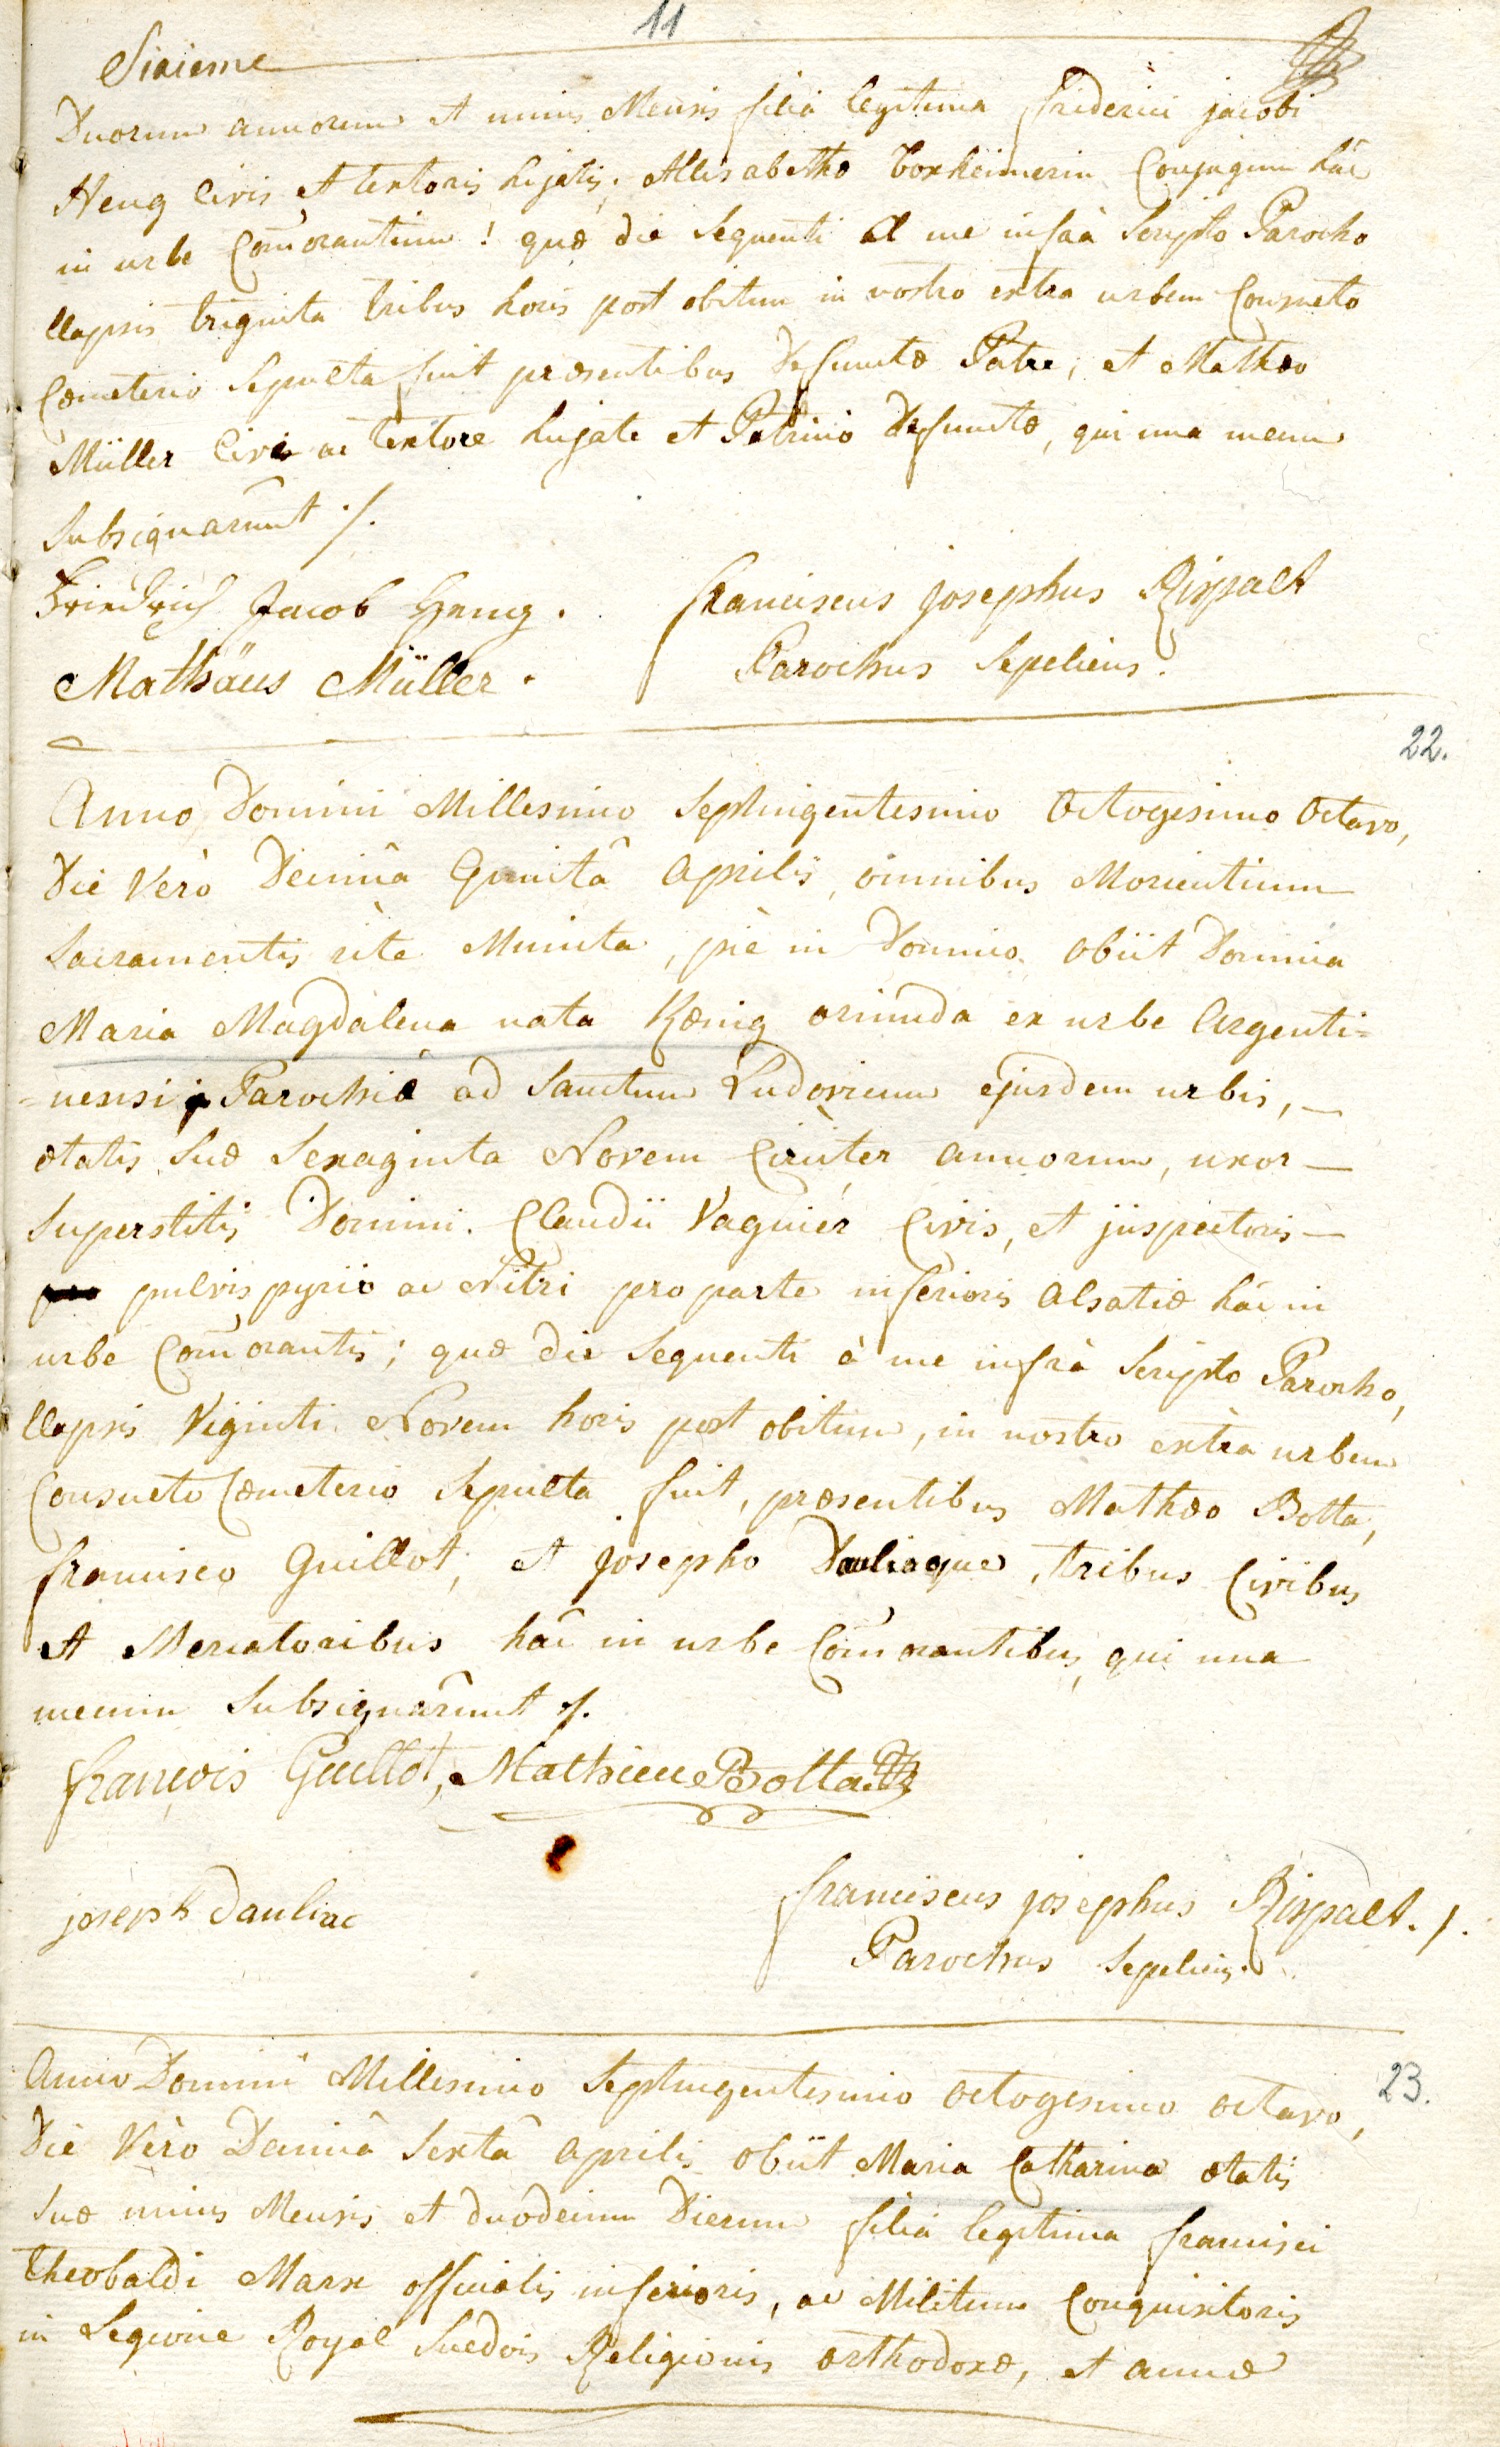 11
Sixieme
Duorum annorum et unius Mensis filia legitima friderici jacobi
Heng Civis et textoris hujatis, et Elisabethæ Boxheimerin Conjugum hâc
in urbe Com̄orantium! quæ die sequenti a me infrà Scripto Parocho
Elapsis triginta tribus horis post obitum in nostro extra urbem Consueto
Cœmeterio Sepulta fuit præsentibus Defunctæ Patre, et Mathæo
Müller Cive ac textore hujate et Patrino Defunctæ, qui una mecum
Subsignarunt ./.
Friedrich Jacob Heng. franciscus josephus Rispalt
Mathäus Müller. Parochus Sepeliens.
22.
Anno Domini Millesimo Septingentesimo Octogesimo Octavo,
Die Verò Decimâ Quintâ Aprilis, omnibus Morientium
Sacramentis ritè Munita, piè in Domino obiit Domina
Maria Magdalena nata Kœnig oriunda ex urbe Argenti=
=nensi Parochiæ ad Sanctum Ludovicum ejusdem urbis, —
ætatis Suæ Sexaginta Novem Circiter annorum, uxor —
Superstitis Domini Claudii Vaguier Civis, et jnspectoris —
pulvis pyrio ac Nitri pro parte inferioris Alsatiæ hâc in
urbe Com̄orantis; quæ die Sequenti à me infrà Scripto Parocho,
Elapsis Viginti Novem horis post obitum, in nostro extrà urbem
Consueto Cœmeterio Sepulta fuit, præsentibus Mathæo Botta,
francisco Guillot, et josepho Dauliaque, tribus Civibus
et Mercatoribus hâc in urbe Com̄orantibus, qui una
mecum Subsignârunt ./.
françois Guillot, Mathieu Botta
joseph dauliac franciscus josephus Rispalt ./.
Parochus Sepeliens.
23.
Anno Domini Millesimo Septingentesimo octogesimo octavo,
Die Vèro Decimâ Sextâ Aprilis obiit Maria Catharina ætatis
Suæ unius Mensis et duodecim Dierum filia legitima francisci
Theobaldi Marx officialis inferioris, ac Militum Conquisitoris
in Legione Royal Suedois Religionis orthodoxæ, et annæ